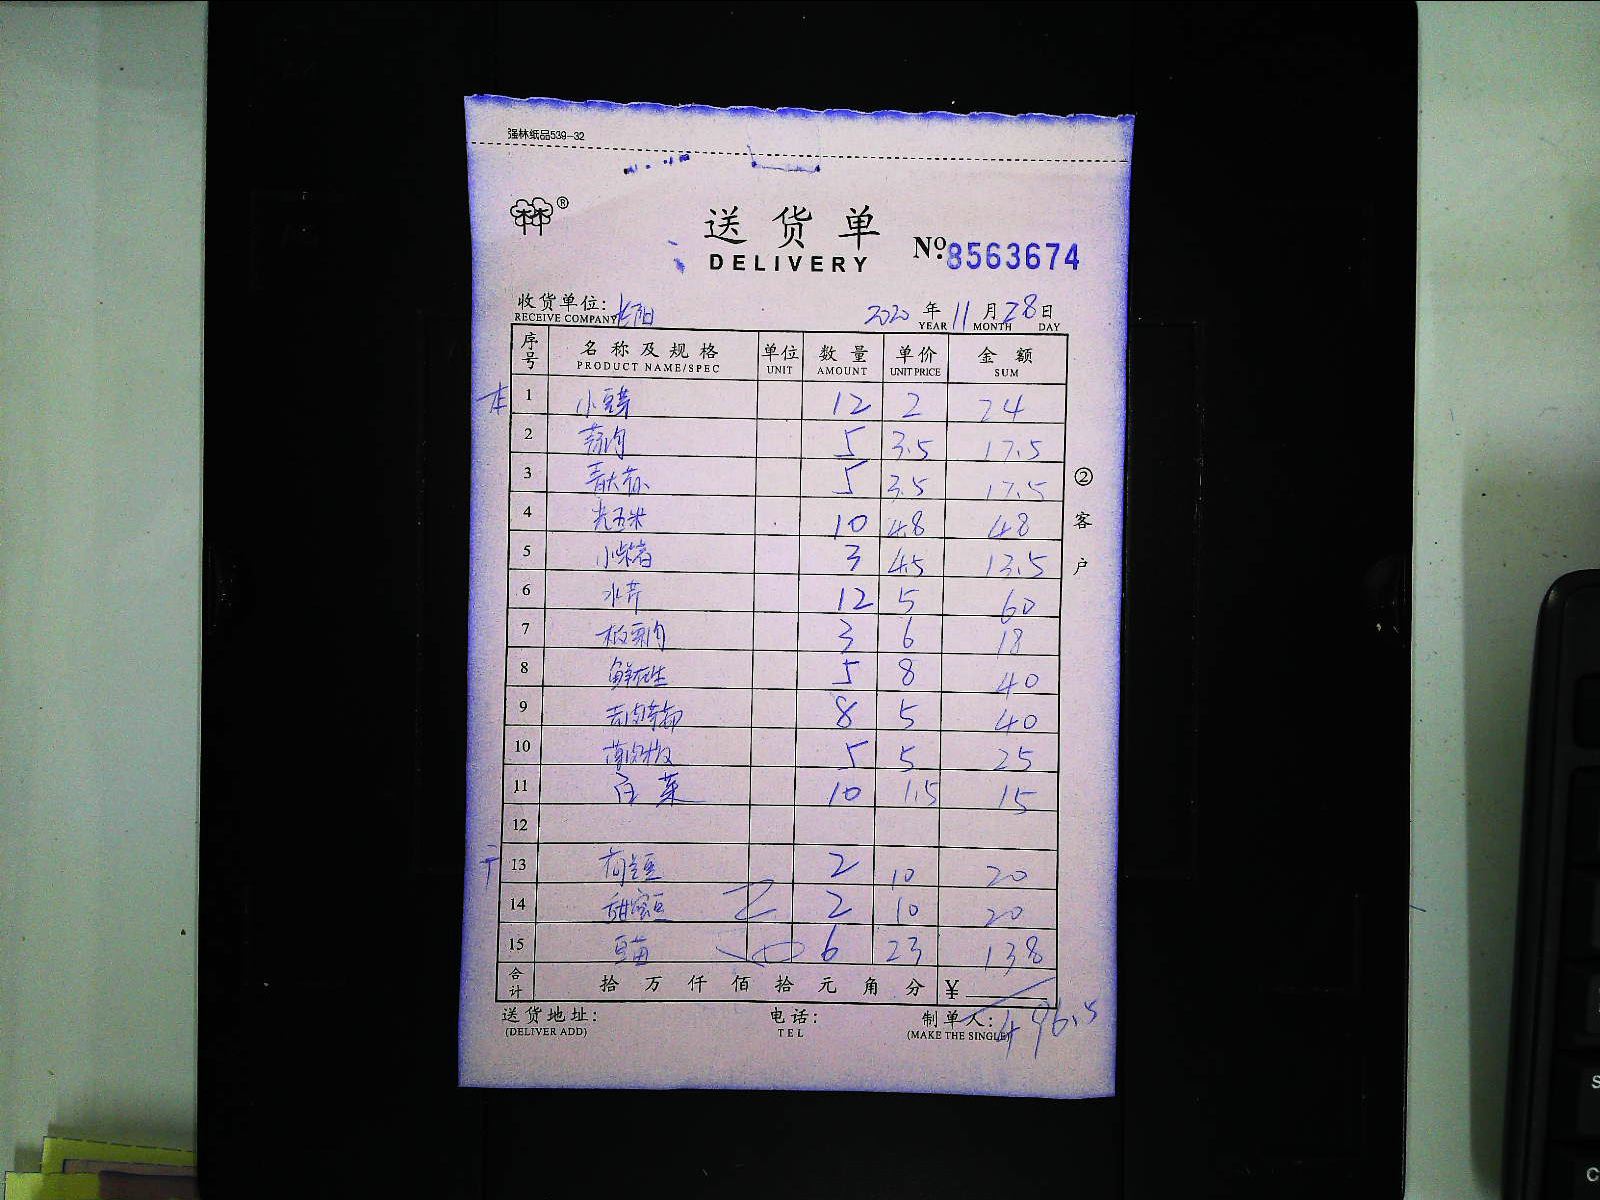 强林纸品539-32
®
送货单
DELIVERY
No.8563674
收货单位:
RECEIVE COMPANY
2020年11月28日
YEAR MONTH DAY
序号 名称及规格 单位 数量 单价 金额
PRODUCT NAME/SPEC UNIT AMOUNT UNIT PRICE SUM
本 1 小豆芽 12 2 24
2 5 3.5 17.5
3 青大蒜 5 3.5 17.5
4 光玉米 10 4.8 48
5 3 4.5 13.5
6 水芹 12 5 60
7 板栗肉 3 6 18
8 鲜花生 5 8 40
9 8 5 40
10 5 5 25
11 白菜 10 1.5 15
12
13 荷兰豆 2 10 20
14 甜蜜豆 2 10 20
15 豆苗 6 23 138
合计 拾万仟佰拾元角分 ¥
496.5
送货地址: 电话: 制单人:
(DELIVER ADD) TEL (MAKE THE SINGLE)
②客户